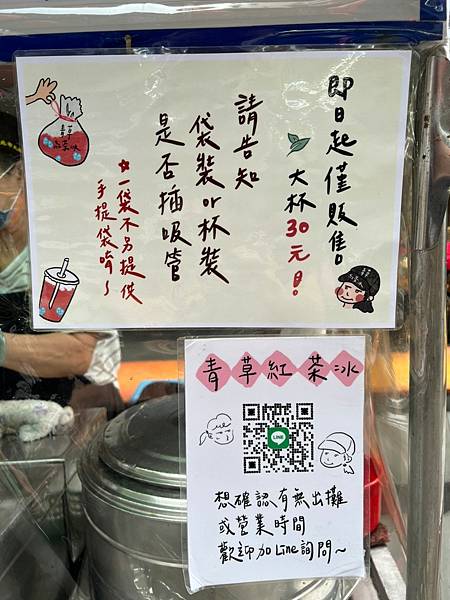 即日起僅販售
大杯30元！
請告知
袋裝or杯裝
是否插吸管
☆一袋不另提供
手提袋唷～
青草紅茶冰
LINE
想確認有無出攤
或營業時間
歡迎加Line詢問～